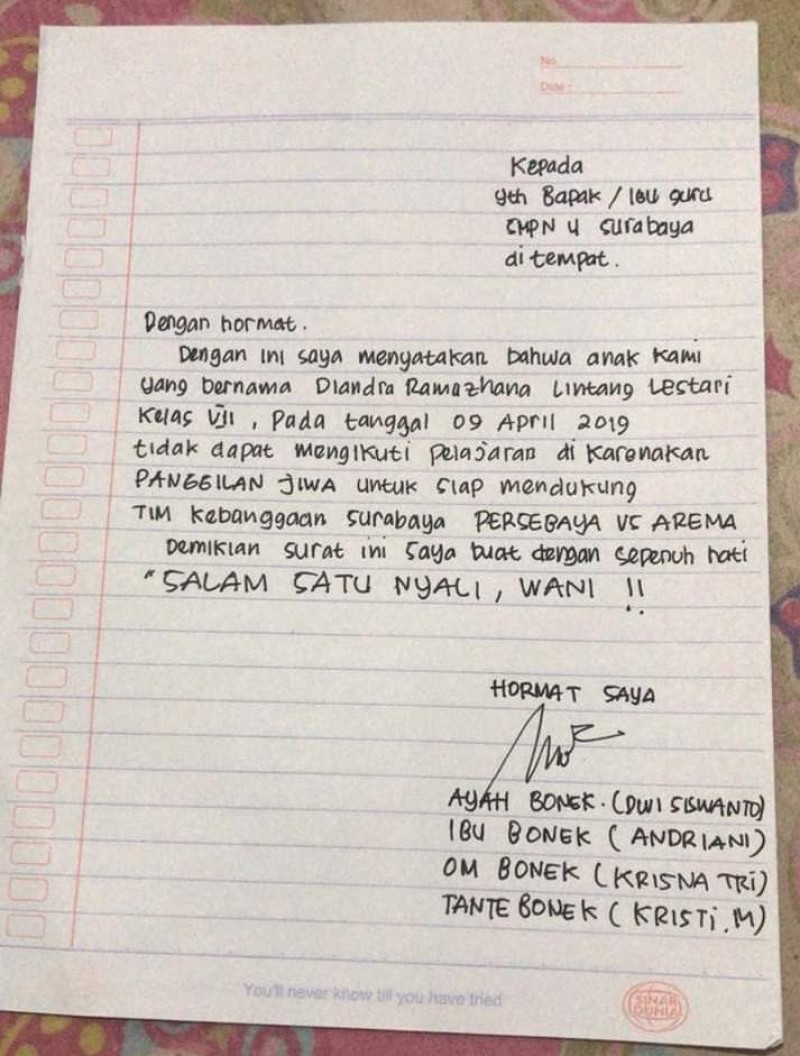 No.
Date :
Kepada
yth Bapak / Ibu guru
SMPN 4 Surabaya
di tempat.
Dengan hormat.
Dengan ini saya menyatakan bahwa anak kami
yang bernama Diandra Ramazhana Lintang Lestari
Kelas VII, Pada tanggal 09 April 2019
tidak dapat mengikuti pelajaran di karenakan
PANGGILAN JIWA untuk siap mendukung
TIM kebanggaan Surabaya PERSEBAYA VS AREMA
Demikian surat ini saya buat dengan sepenuh hati
"SALAM SATU NYALI, WANI !!
HORMAT SAYA
AYAH BONEK. (DWI SISWANTO)
IBU BONEK (ANDRIANI)
OM BONEK (KRISNA TRI)
TANTE BONEK (KRISTI.M)
You'll never know till you have tried
SINAR
DUNIA